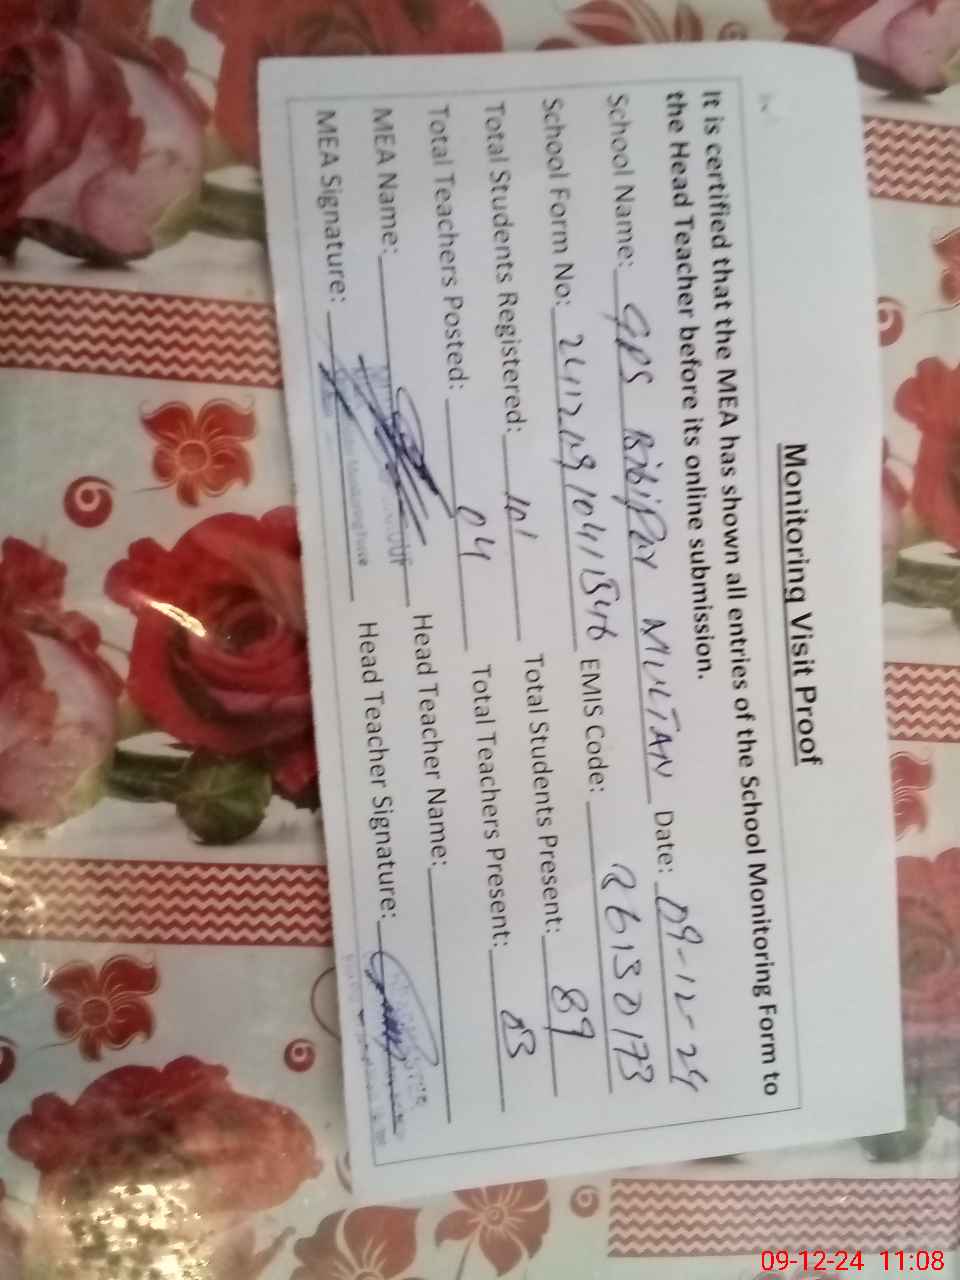 Monitoring Visit Proof
It is certified that the MEA has shown all entries of the School Monitoring Form to
the Head Teacher before its online submission.
School Name: GPS Bibipur MULTAN Date: 09-12-24
School Form No: EMIS Code:
Total Students Registered: 101 Total Students Present: 89
Total Teachers Posted: 04 Total Teachers Present: 03
MEA Name: Head Teacher Name:
MEA Signature: Head Teacher Signature:
09-12-24 11:08